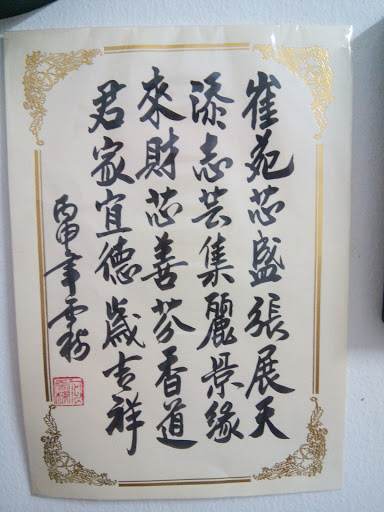 崔苑芯盛張展天
添志芸集麗景緣
來財芯善芬香道
君家宜德歲吉祥
丙申年